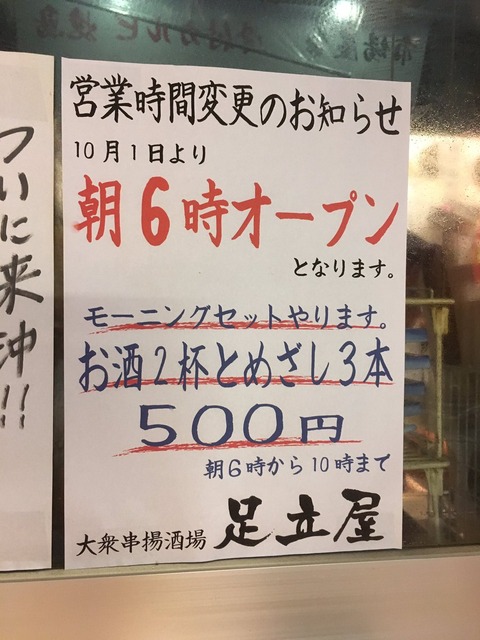 営業時間変更のお知らせ
10月1日より
朝6時オープン
となります。
モーニングセットやります。
お酒2杯とめざし3本
500円
朝6時から10時まで
大衆串揚酒場 足立屋
ついに来沖!!